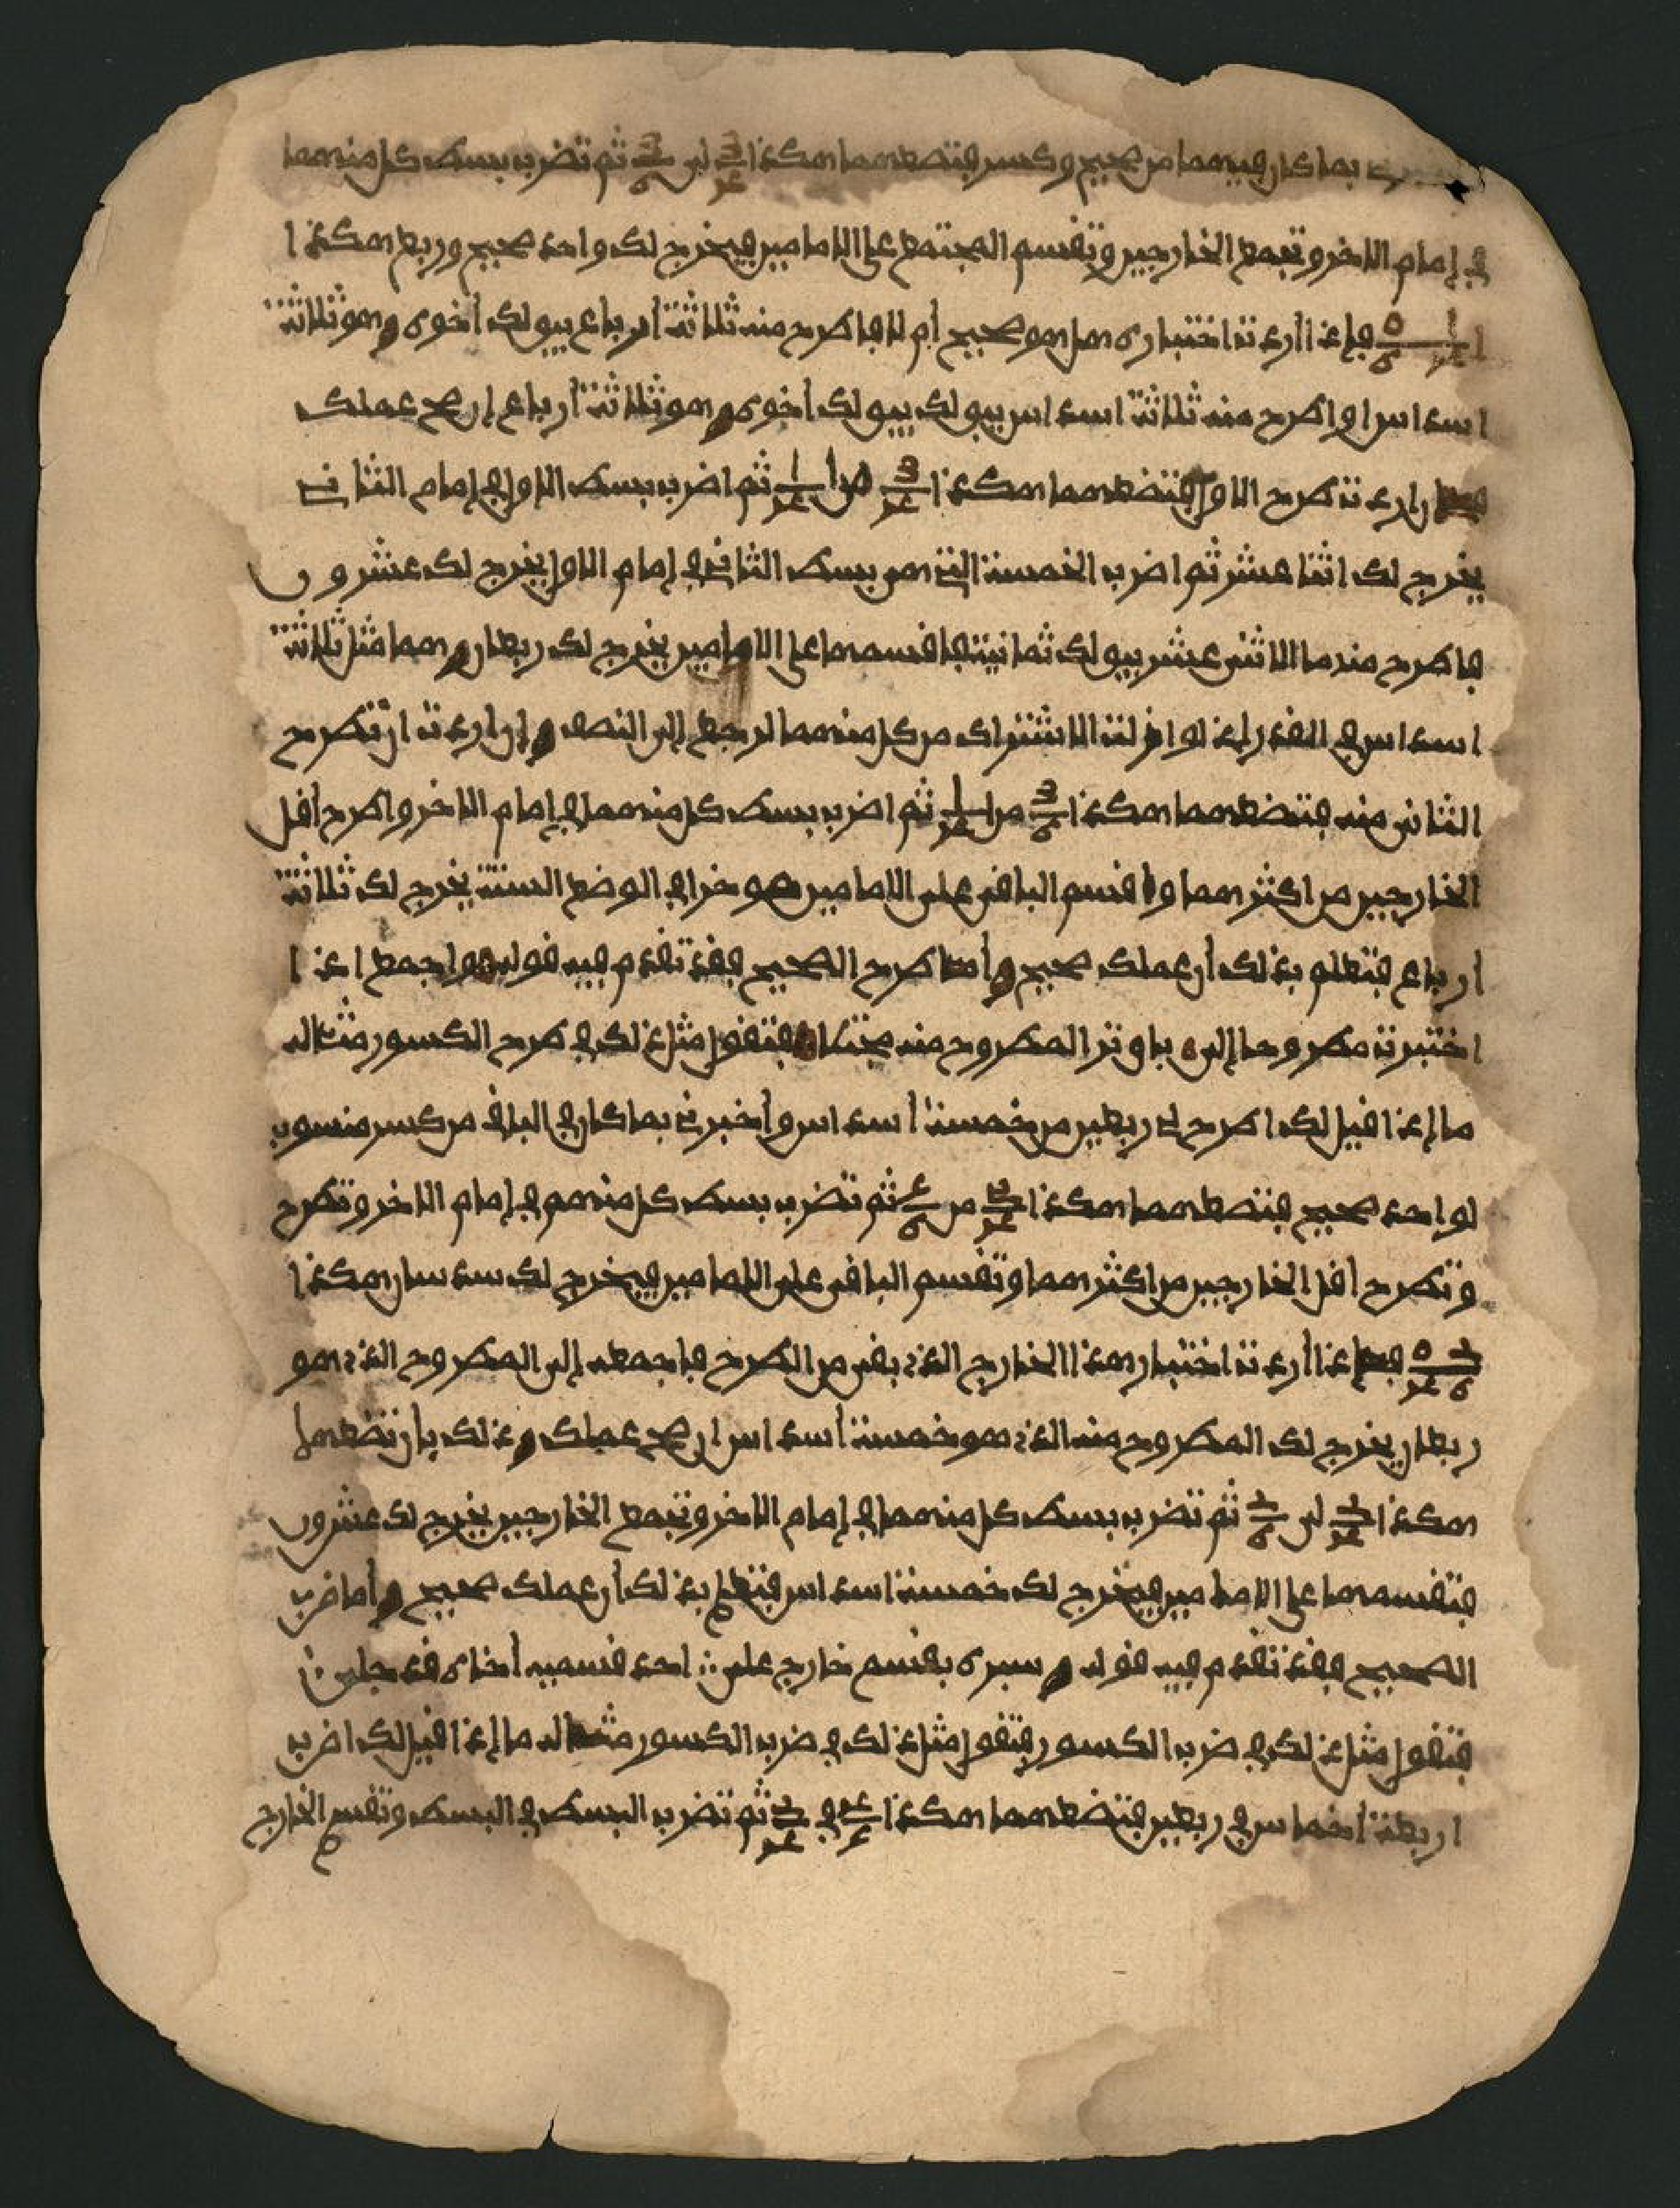 بما كان فيهما من صحيح وكسر فتضعهما هكذا ٣/٤ لى ٣/٦ ثم تضرب بسط كل منهما
في إمام الاخر وتجمع الخارجين وتقسم المجتمع على الامامين فيخرج لك واحد صحيح وربع هكذا
١ ١/٤ ٥/٦ فإذا أردت اختباره هل هو صحيح أم لا فاطرح منه ثلاثة أرباع يبق لك أخوه وهو ثلاثة
اسداس او اطرح منه ثلاثة اسداس يبو لك يبو لك أخوه وهو ثلاثة أرباع إن صح عملك
ان اردت طرح الاول فتضعهما هكذا ٣/٤ من ١ ١/٤ ثم اضرب بسط الاول في إمام الثاني
يخرج لك اثنا عشر ثم اضرب الخمسة التي هي بسط الثاني في إمام الاول يخرج لك عشرون
فاطرح منهما الاثنى عشر يبو لك ثمانية فاقسمها على الامامين يخرج لك ربعان وهما مثل ثلاثة
اسداس في القدر إذ لو ازلت الاشتراك من كل منهما لرجع إلى النصف وإن اردت ان تطرح
الثاني منه فتضعهما هكذا ٣/٦ من ١ ١/٤ ثم اضرب بسط كل منهما في إمام الاخر واطرح أقل
الخارجين من اكثرهما واقسم الباقى على الامامين وهو خرا في الوضع الستة يخرج لك ثلاثة
ارباع فتعلم بذلك أن عملك صحيح وأما طرح الصحيح فقد تقدم فيه قوله واجمع اذا
اختبرت مطروحا إلى باو تر المطروح منه مجتلا فتقول مثل ذلك في طرح الكسور مثاله
ما إذا قيل لك اطرح لي ربعين من خمسة أسداس وأخبرني بما كان في الباقي من كسر منسوب
لواحد صحيح فتضعهما هكذا ٢/٤ من ٥/٦ ثم تضرب بسط كل منهم في إمام الاخر وتطرح
وتطرح أقل الخارجين من اكثرهما وتقسم الباقى على الامامين فيخرج لك سدسان هكذا
٢/٦ ٥/٤ فإذا أردت اختبار هذا الخارج الذي بقى من الطرح فاجمعه إلى المطروح الذي هو
ربعان يخرج لك المطروح منه الذي هو خمسة أسداس ان صح عملك وذلك بان تضعهما
هكذا ٢/٤ لى ٢/٦ ثم تضرب بسط كل منهما في إمام الاخر وتجمع الخارجين يخرج لك عشرون
فتقسمها على الامامين فيخرج لك خمسة اسداس فتعلم بذلك أن عملك صحيح وأما ضرب
الصحيح فقد تقدم فيه قوله وسبره بقسم خارج على احد قسميه أخاه قد جلى
فتقول مثل ذلك في ضرب الكسور فتقول مثل ذلك في ضرب الكسور مثاله ما إذا قيل لك اضرب
اربعة أخماس في ربعين فتضعهما هكذا ٤/٥ في ٢/٤ ثم تضرب البسط في البسط وتقسم الخارج